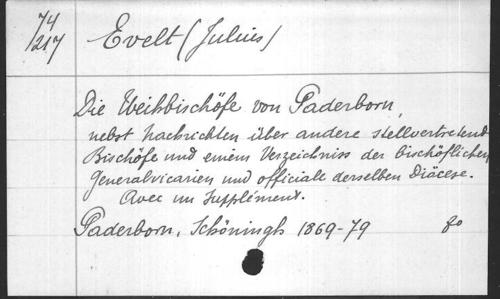 74
/217
Evelt (Julius)
Die Weihbischöfe von Paderborn,
nebst Nachrichten über andere stellvertretend
Bischöfe und einem Verzeichniss der bischöflichen
Generalvicarien und officiale derselben Diöcese.
Avec un Supplément.
Paderborn, Schöningh 1869-79 fo